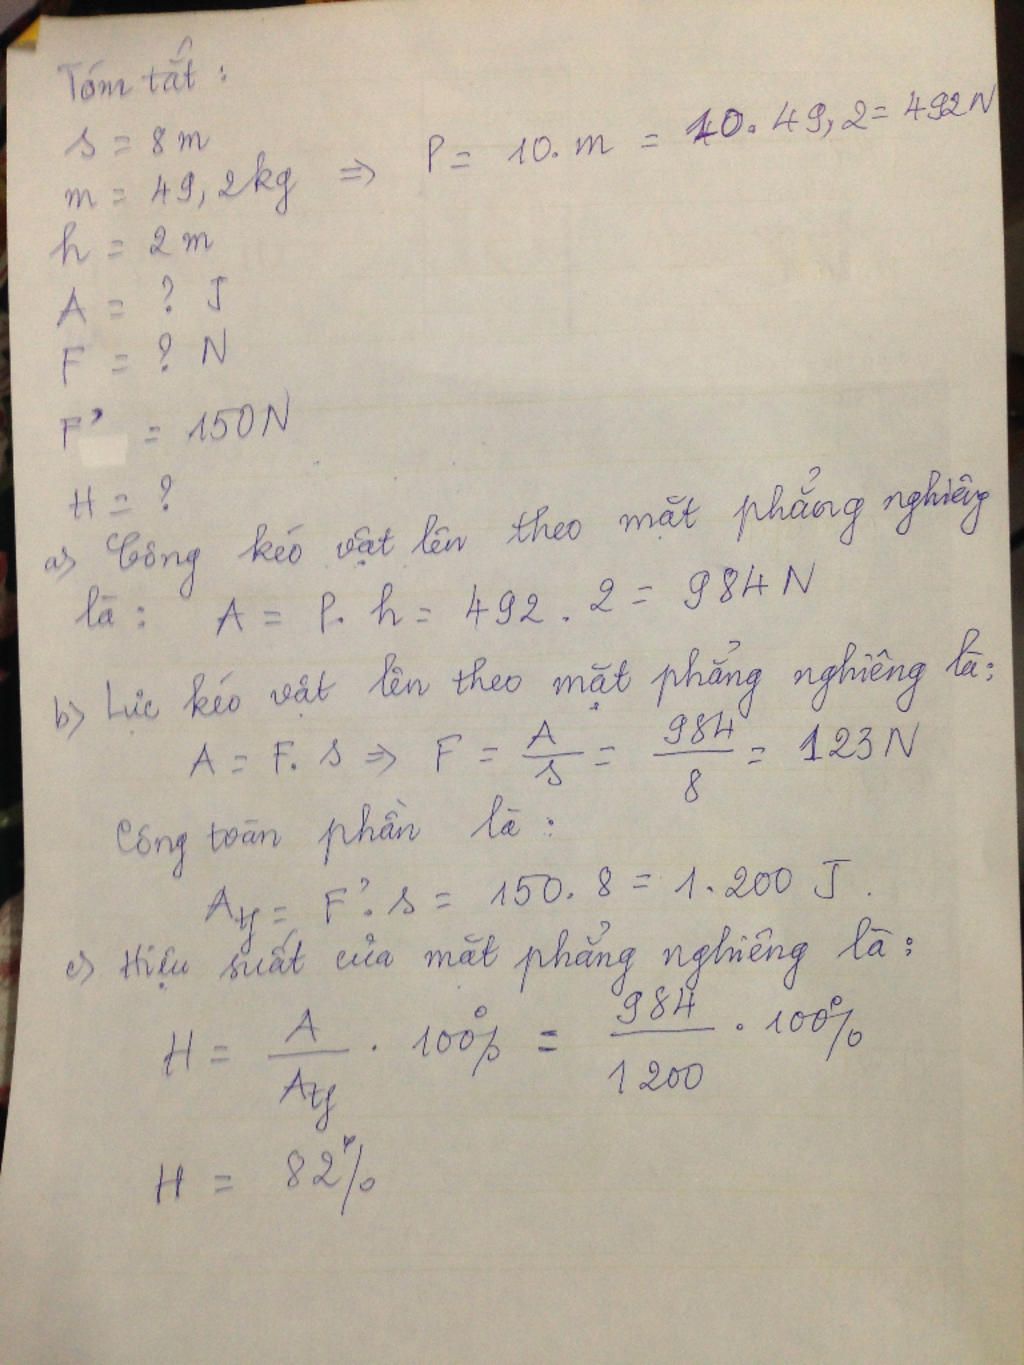 Tóm tắt :
s = 8 m
m = 49,2 kg ⇒ P = 10.m = 10.49,2 = 492 N
h = 2 m
A = ? J
F = ? N
F' = 150N
H = ?
a) Công kéo vật lên theo mặt phẳng nghiêng
là : A = P.h = 492.2 = 984 N
b) Lực kéo vật lên theo mặt phẳng nghiêng là :
A = F.s ⇒ F = A/s = 984/8 = 123 N
Công toàn phần là :
Atp = F'.s = 150.8 = 1.200 J.
c) Hiệu suất của mặt phẳng nghiêng là :
H = A/Atp . 100% = 984/1200 . 100%
H = 82%